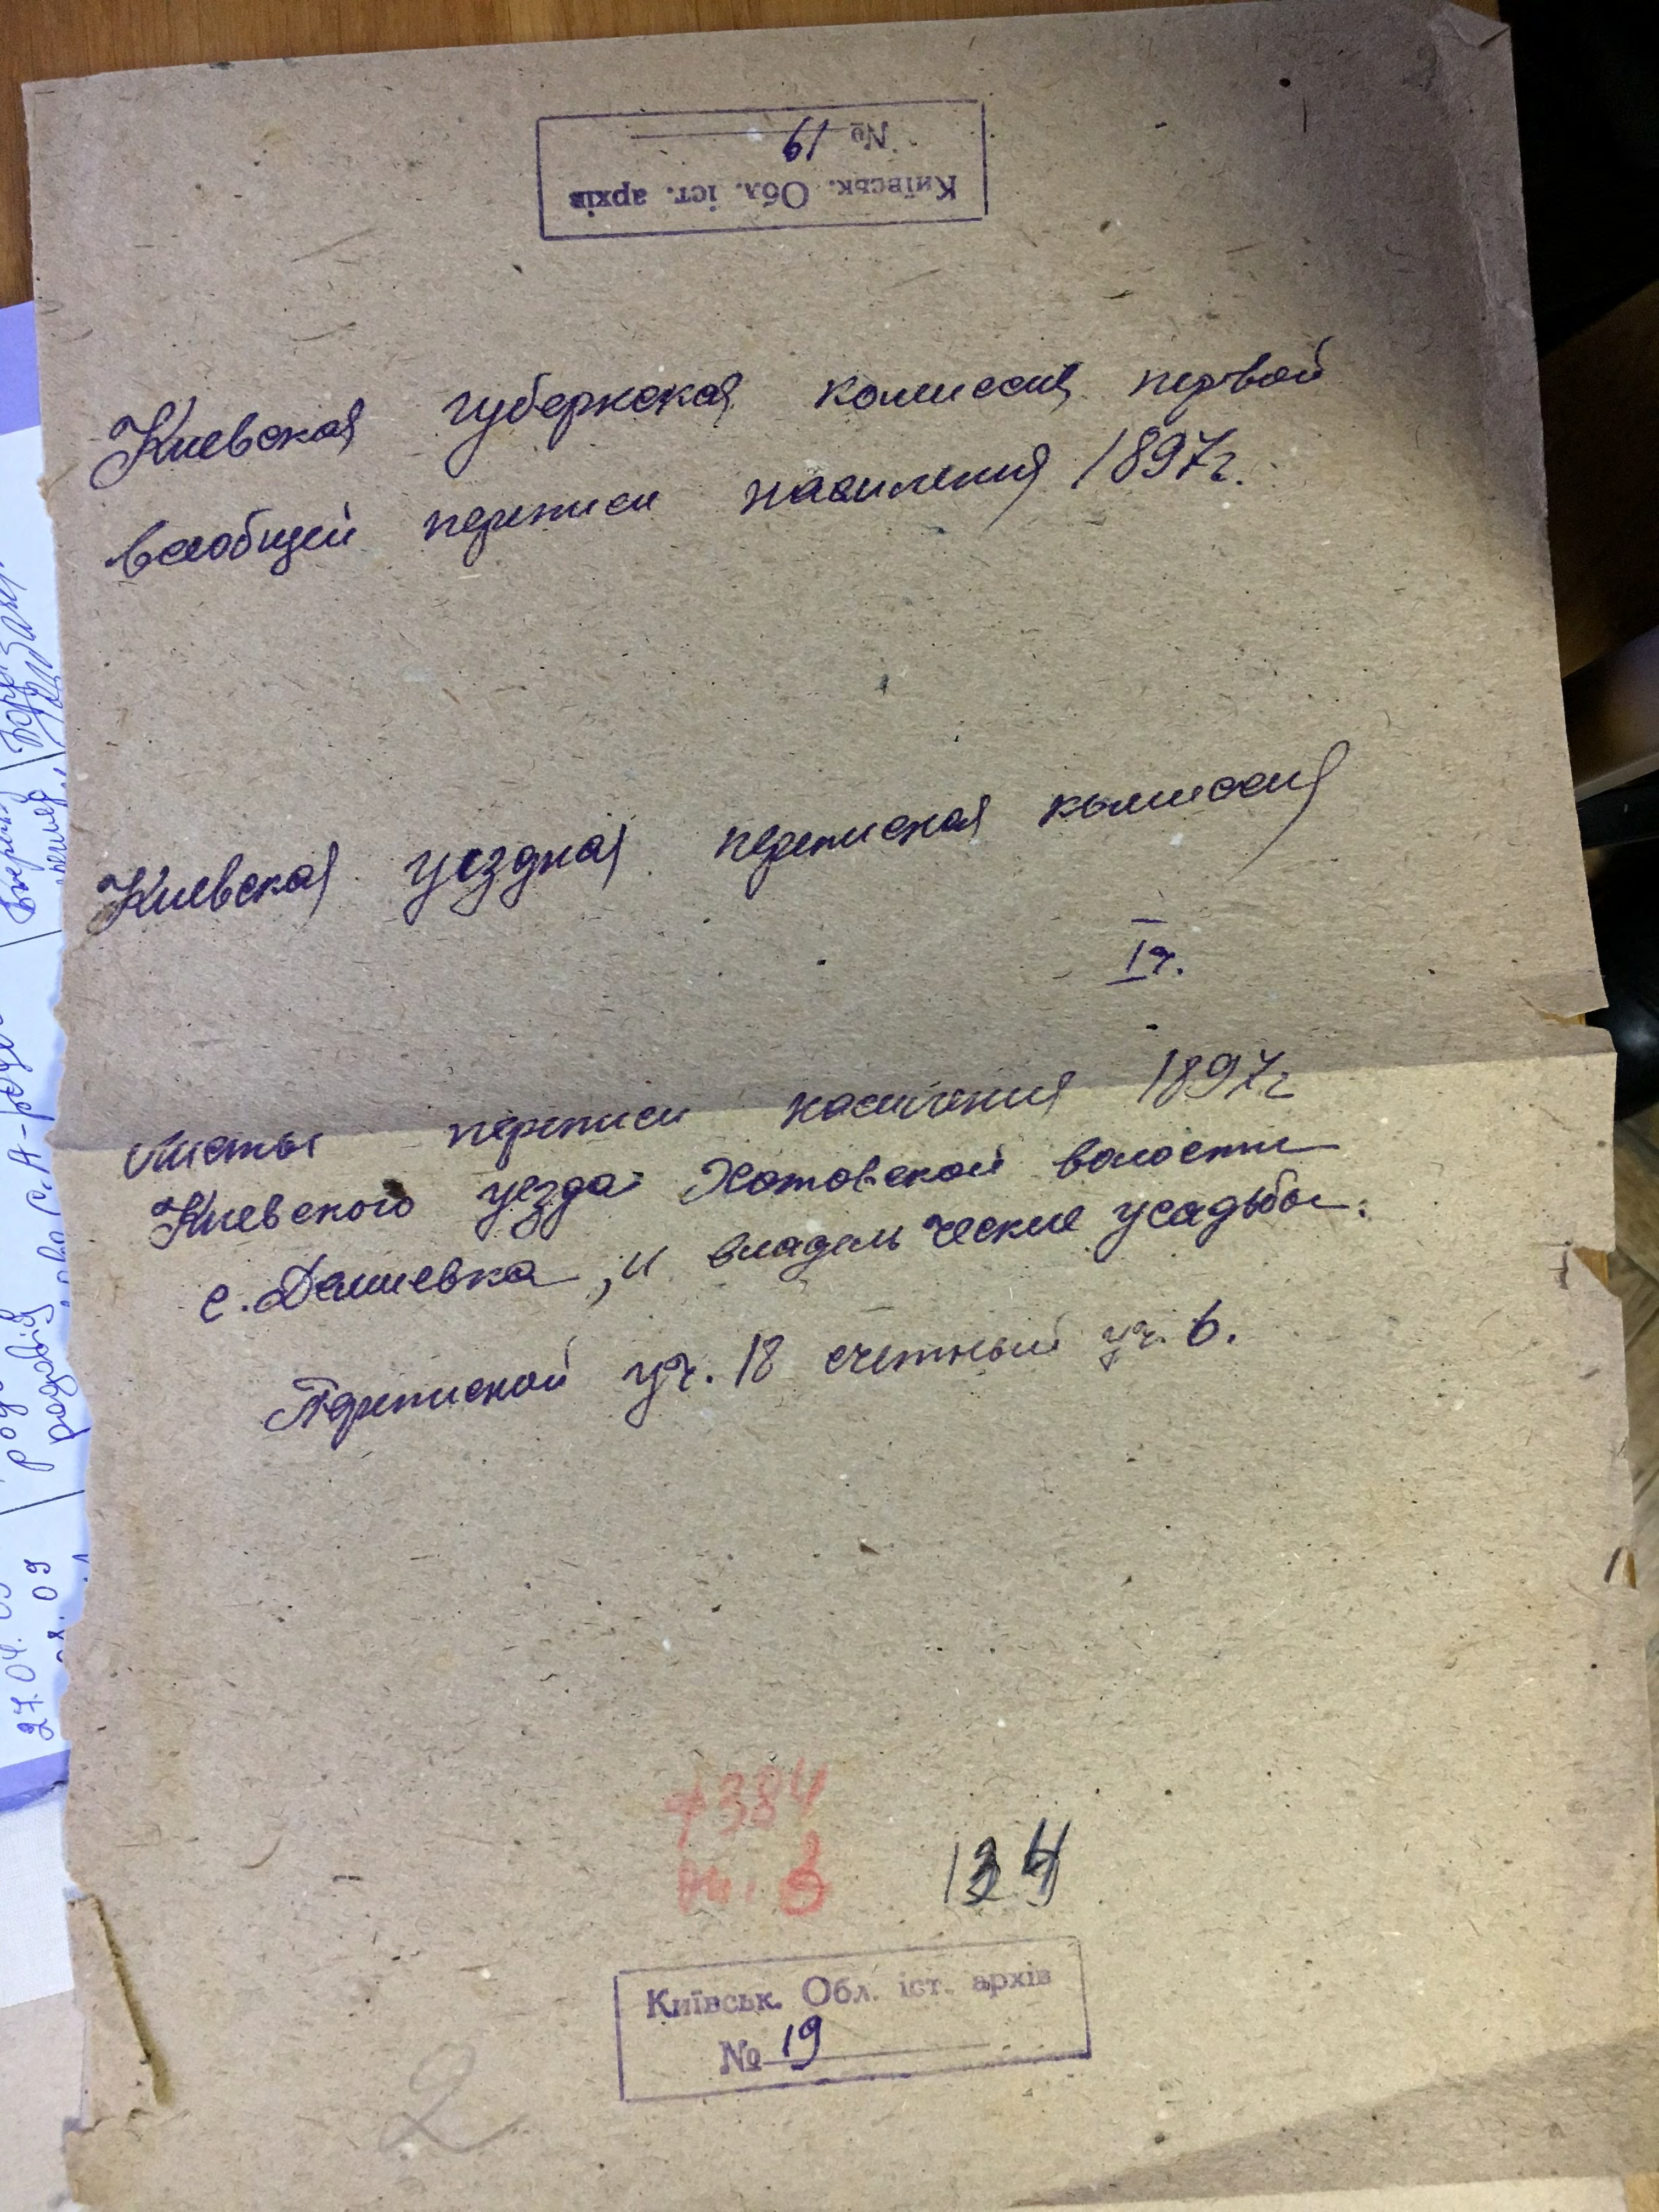 Київськ. Обл. іст. архів
№ 19
Киевская губернская комиссия первой
всеобщей переписи населения 1897г.
Киевская уездная переписная комиссия
I ч.
Листы переписи населения 1897г
Киевского уезда Хотовской волости
с. Демиевка, и владельческие усадьбы.
Переписной уч. 18 счетный уч. 6.
384
оп. 3
134
Київськ. Обл. іст. архів
№ 19
2
27.04.09
09